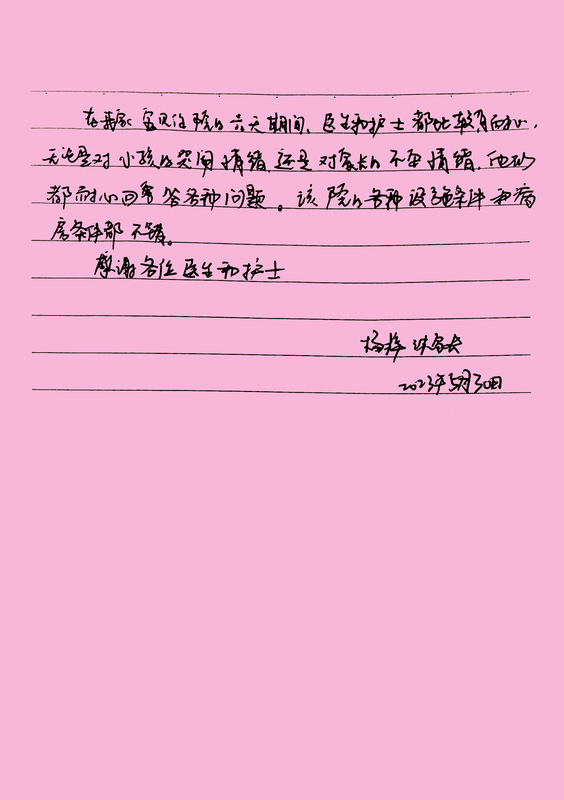 在我家宝贝住院的六天期间、医生和护士都比较有耐心，
无论是对小孩的哭闹情绪，还是对家长的不安情绪，他们
都耐心回答各种问题。该院的各种设施条件和病
房条件都不错。
感谢各位医生和护士
杨梓 家长
2023年5月30日